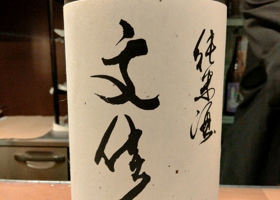 純米酒
文佳